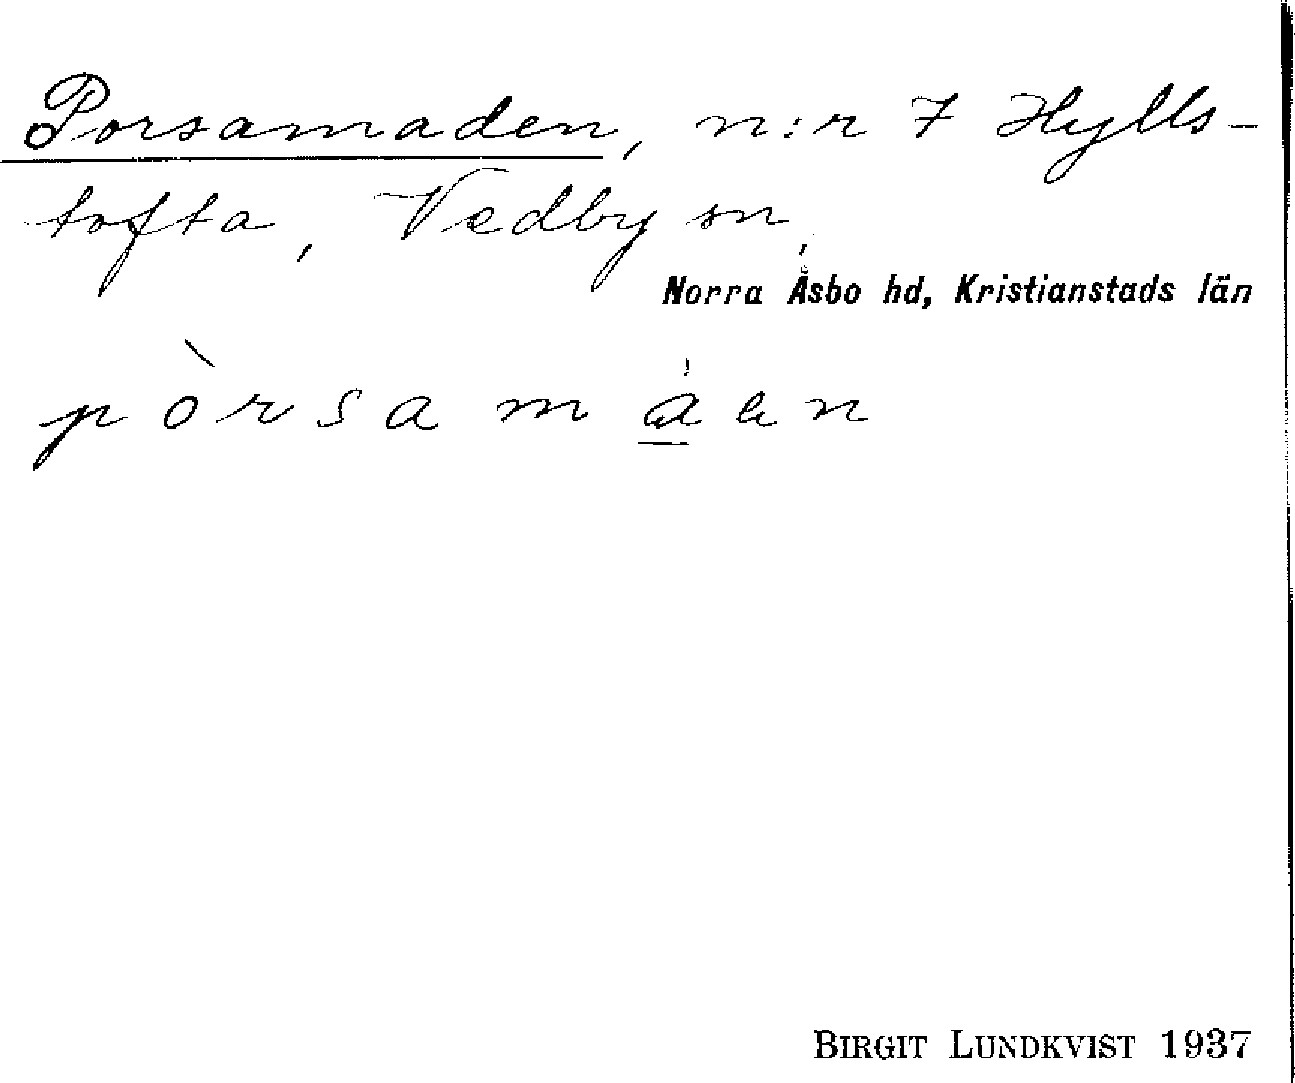 Porsamaden, n:r 7 Hylls-
tofta, Vedby sn,
Norra Åsbo hd, Kristianstads län
pòrsamáen
BIRGIT LUNDKVIST 1937